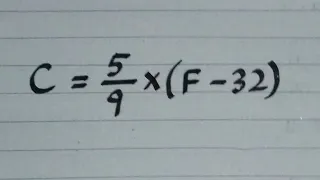 C = 5/9 × (F - 32)